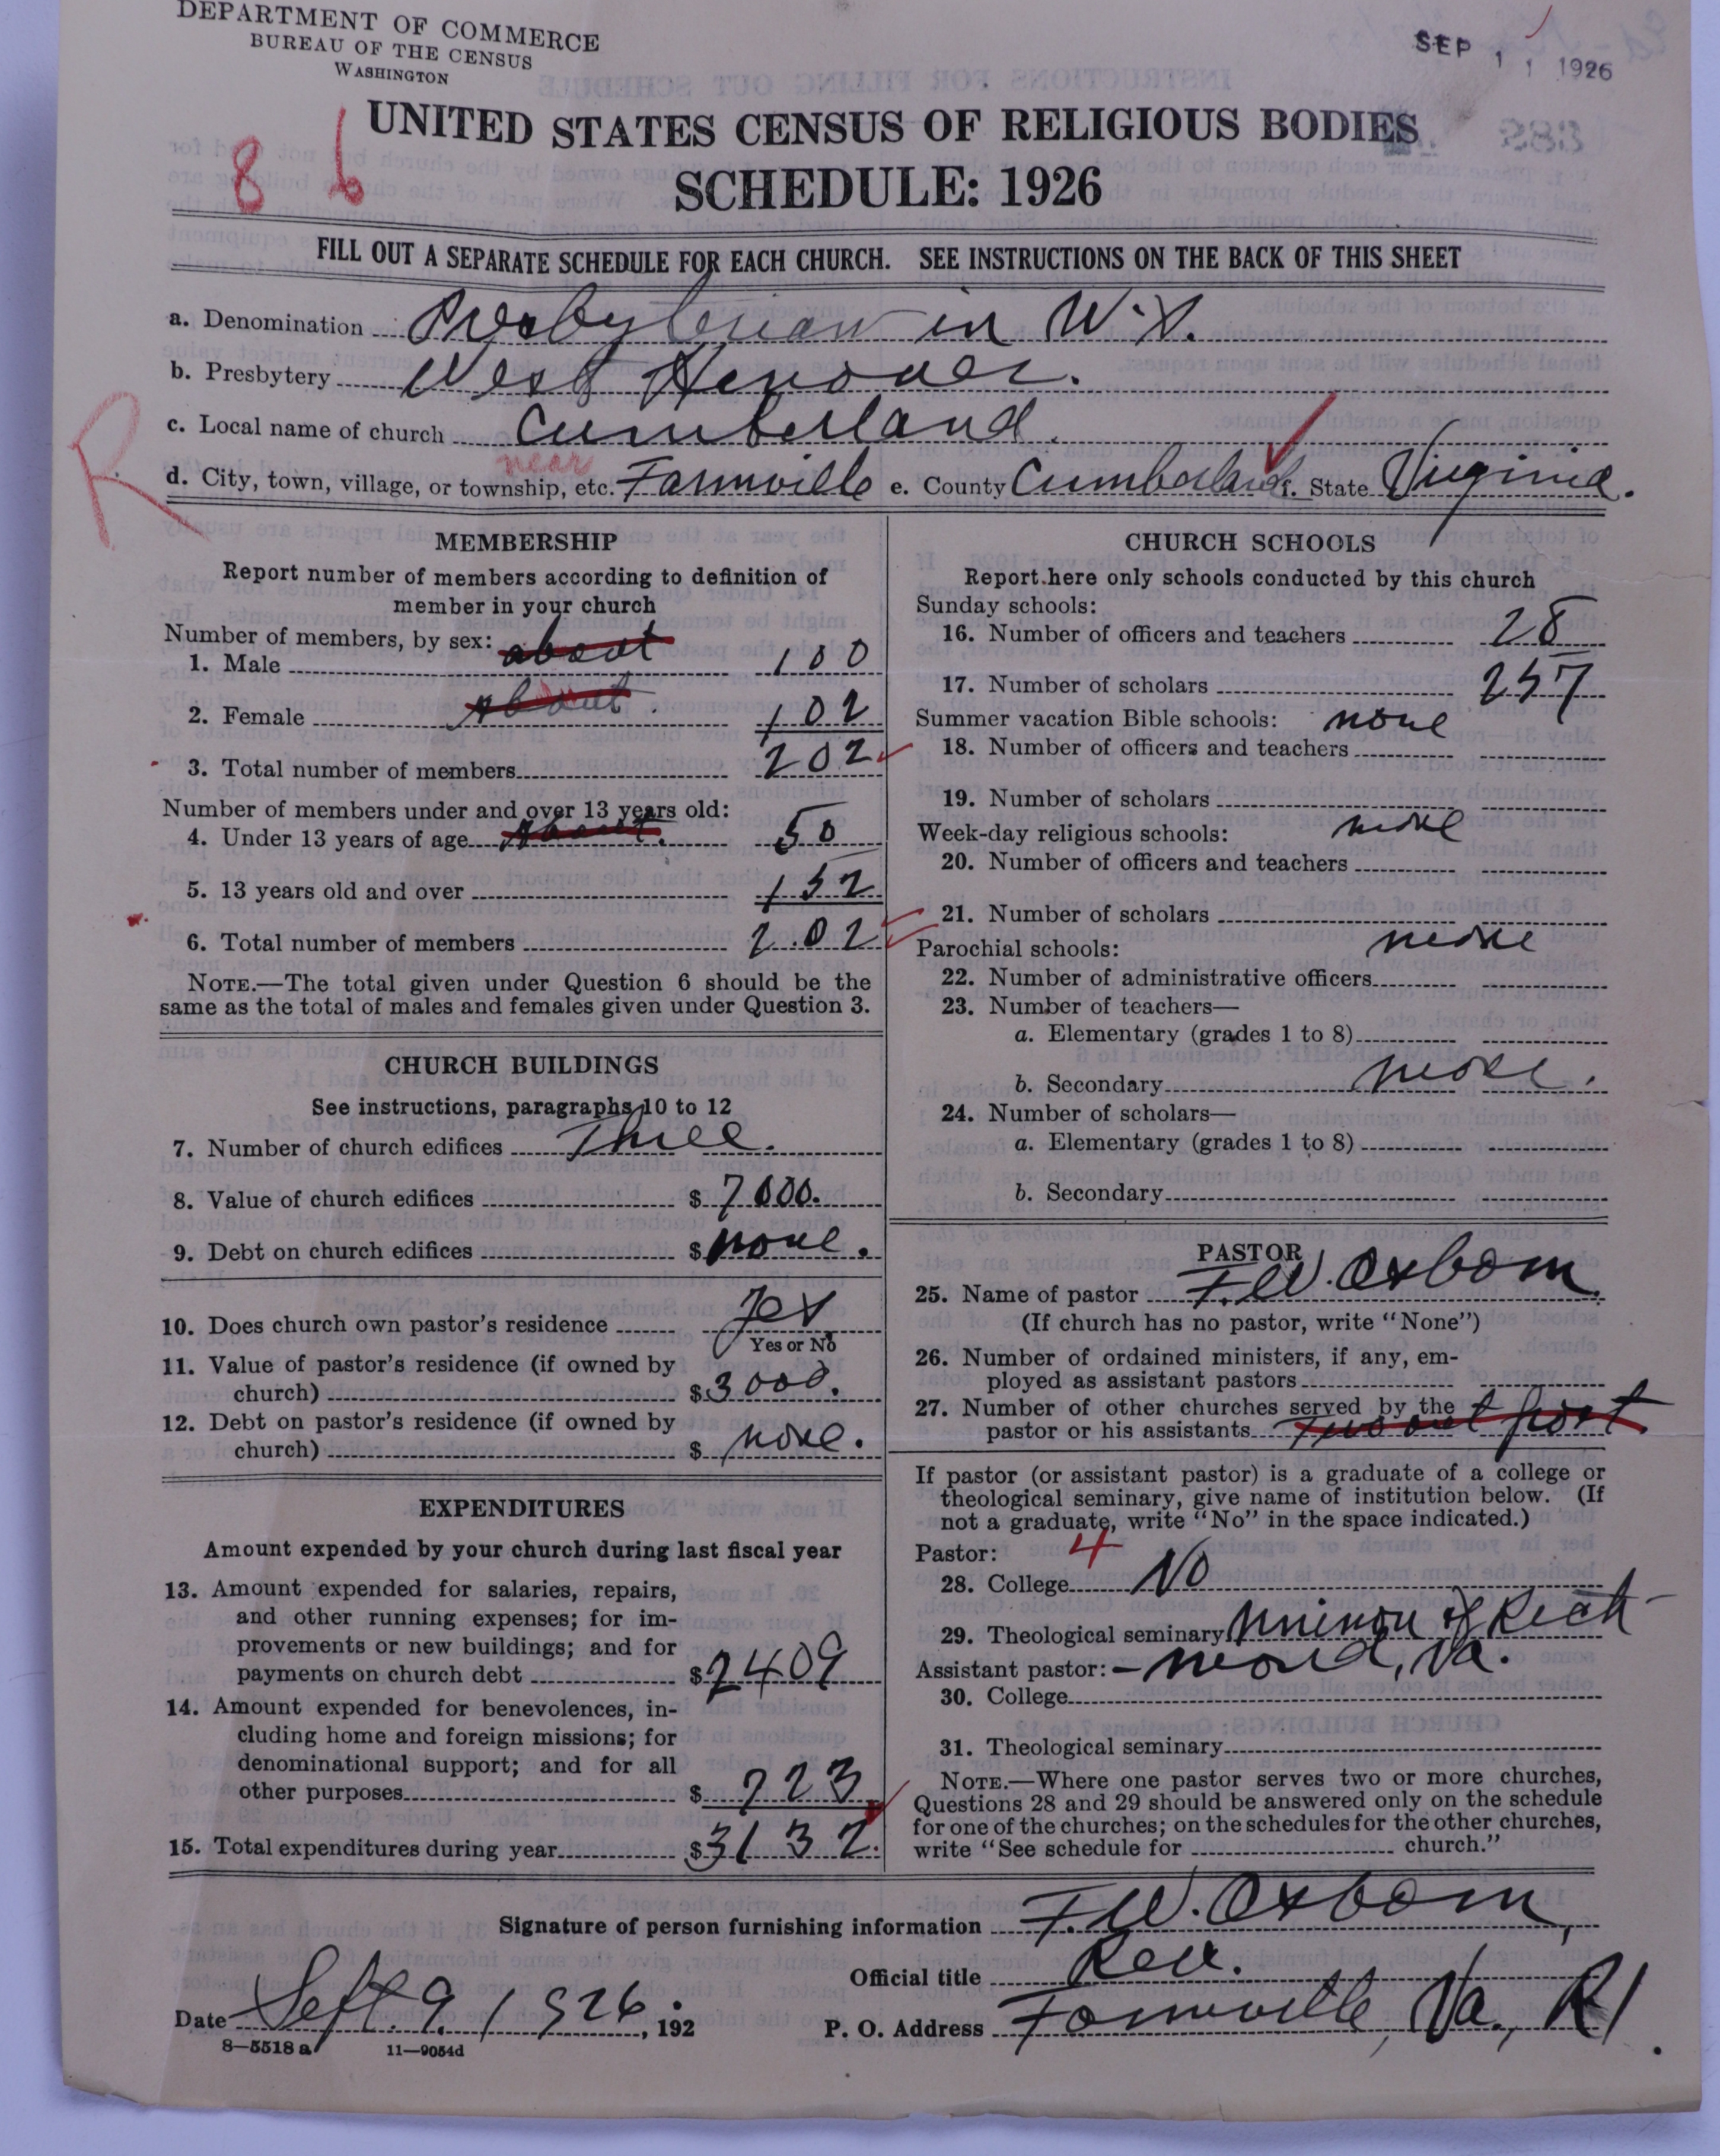 DEPARTMENT OF COMMERCE
BUREAU OF THE CENSUS
WASHINGTON
SEP 11 1926
8 6
UNITED STATES CENSUS OF RELIGIOUS BODIES
SCHEDULE: 1926
FILL OUT A SEPARATE SCHEDULE FOR EACH CHURCH. SEE INSTRUCTIONS ON THE BACK OF THIS SHEET
a. Denomination Presbyterian in U.S.
b. Presbytery West Hanover.
c. Local name of church Cumberland.
R
near
d. City, town, village, or township, etc. Farmville e. County Cumberland f. State Virginia.
MEMBERSHIP
Report number of members according to definition of
member in your church
Number of members, by sex: about
1. Male 100
about
2. Female 102
3. Total number of members 202
Number of members under and over 13 years old:
4. Under 13 years of age About. 50
5. 13 years old and over 152
6. Total number of members 202
NOTE.—The total given under Question 6 should be the
same as the total of males and females given under Question 3.
CHURCH BUILDINGS
See instructions, paragraphs 10 to 12
7. Number of church edifices Three.
8. Value of church edifices $ 7000.
9. Debt on church edifices $ none.
10. Does church own pastor's residence Yes
Yes or No
11. Value of pastor's residence (if owned by
church) $ 3000.
12. Debt on pastor's residence (if owned by
church) $ none.
EXPENDITURES
Amount expended by your church during last fiscal year
13. Amount expended for salaries, repairs,
and other running expenses; for im-
provements or new buildings; and for
payments on church debt $ 2409
14. Amount expended for benevolences, in-
cluding home and foreign missions; for
denominational support; and for all
other purposes $ 723
15. Total expenditures during year $ 3132.
CHURCH SCHOOLS
Report here only schools conducted by this church
Sunday schools:
16. Number of officers and teachers 28
17. Number of scholars 257
Summer vacation Bible schools: none
18. Number of officers and teachers
19. Number of scholars
Week-day religious schools: none
20. Number of officers and teachers
21. Number of scholars
Parochial schools: none
22. Number of administrative officers
23. Number of teachers—
a. Elementary (grades 1 to 8)
b. Secondary none.
24. Number of scholars—
a. Elementary (grades 1 to 8)
b. Secondary
PASTOR
25. Name of pastor F. W. Osborn.
(If church has no pastor, write "None")
26. Number of ordained ministers, if any, em-
ployed as assistant pastors
27. Number of other churches served by the
pastor or his assistants Two out post
If pastor (or assistant pastor) is a graduate of a college or
theological seminary, give name of institution below. (If
not a graduate, write "No" in the space indicated.)
Pastor: 4
28. College No
29. Theological seminary Uninon of Rich-
Assistant pastor: - mond, Va.
30. College
31. Theological seminary
NOTE.—Where one pastor serves two or more churches,
Questions 28 and 29 should be answered only on the schedule
for one of the churches; on the schedules for the other churches,
write "See schedule for church."
Signature of person furnishing information F. W. Osborn,
Official title Rev.
Date Sept. 9, 1926. , 192
P. O. Address Farmville, Va., R1.
8—5518 a 11—9054d